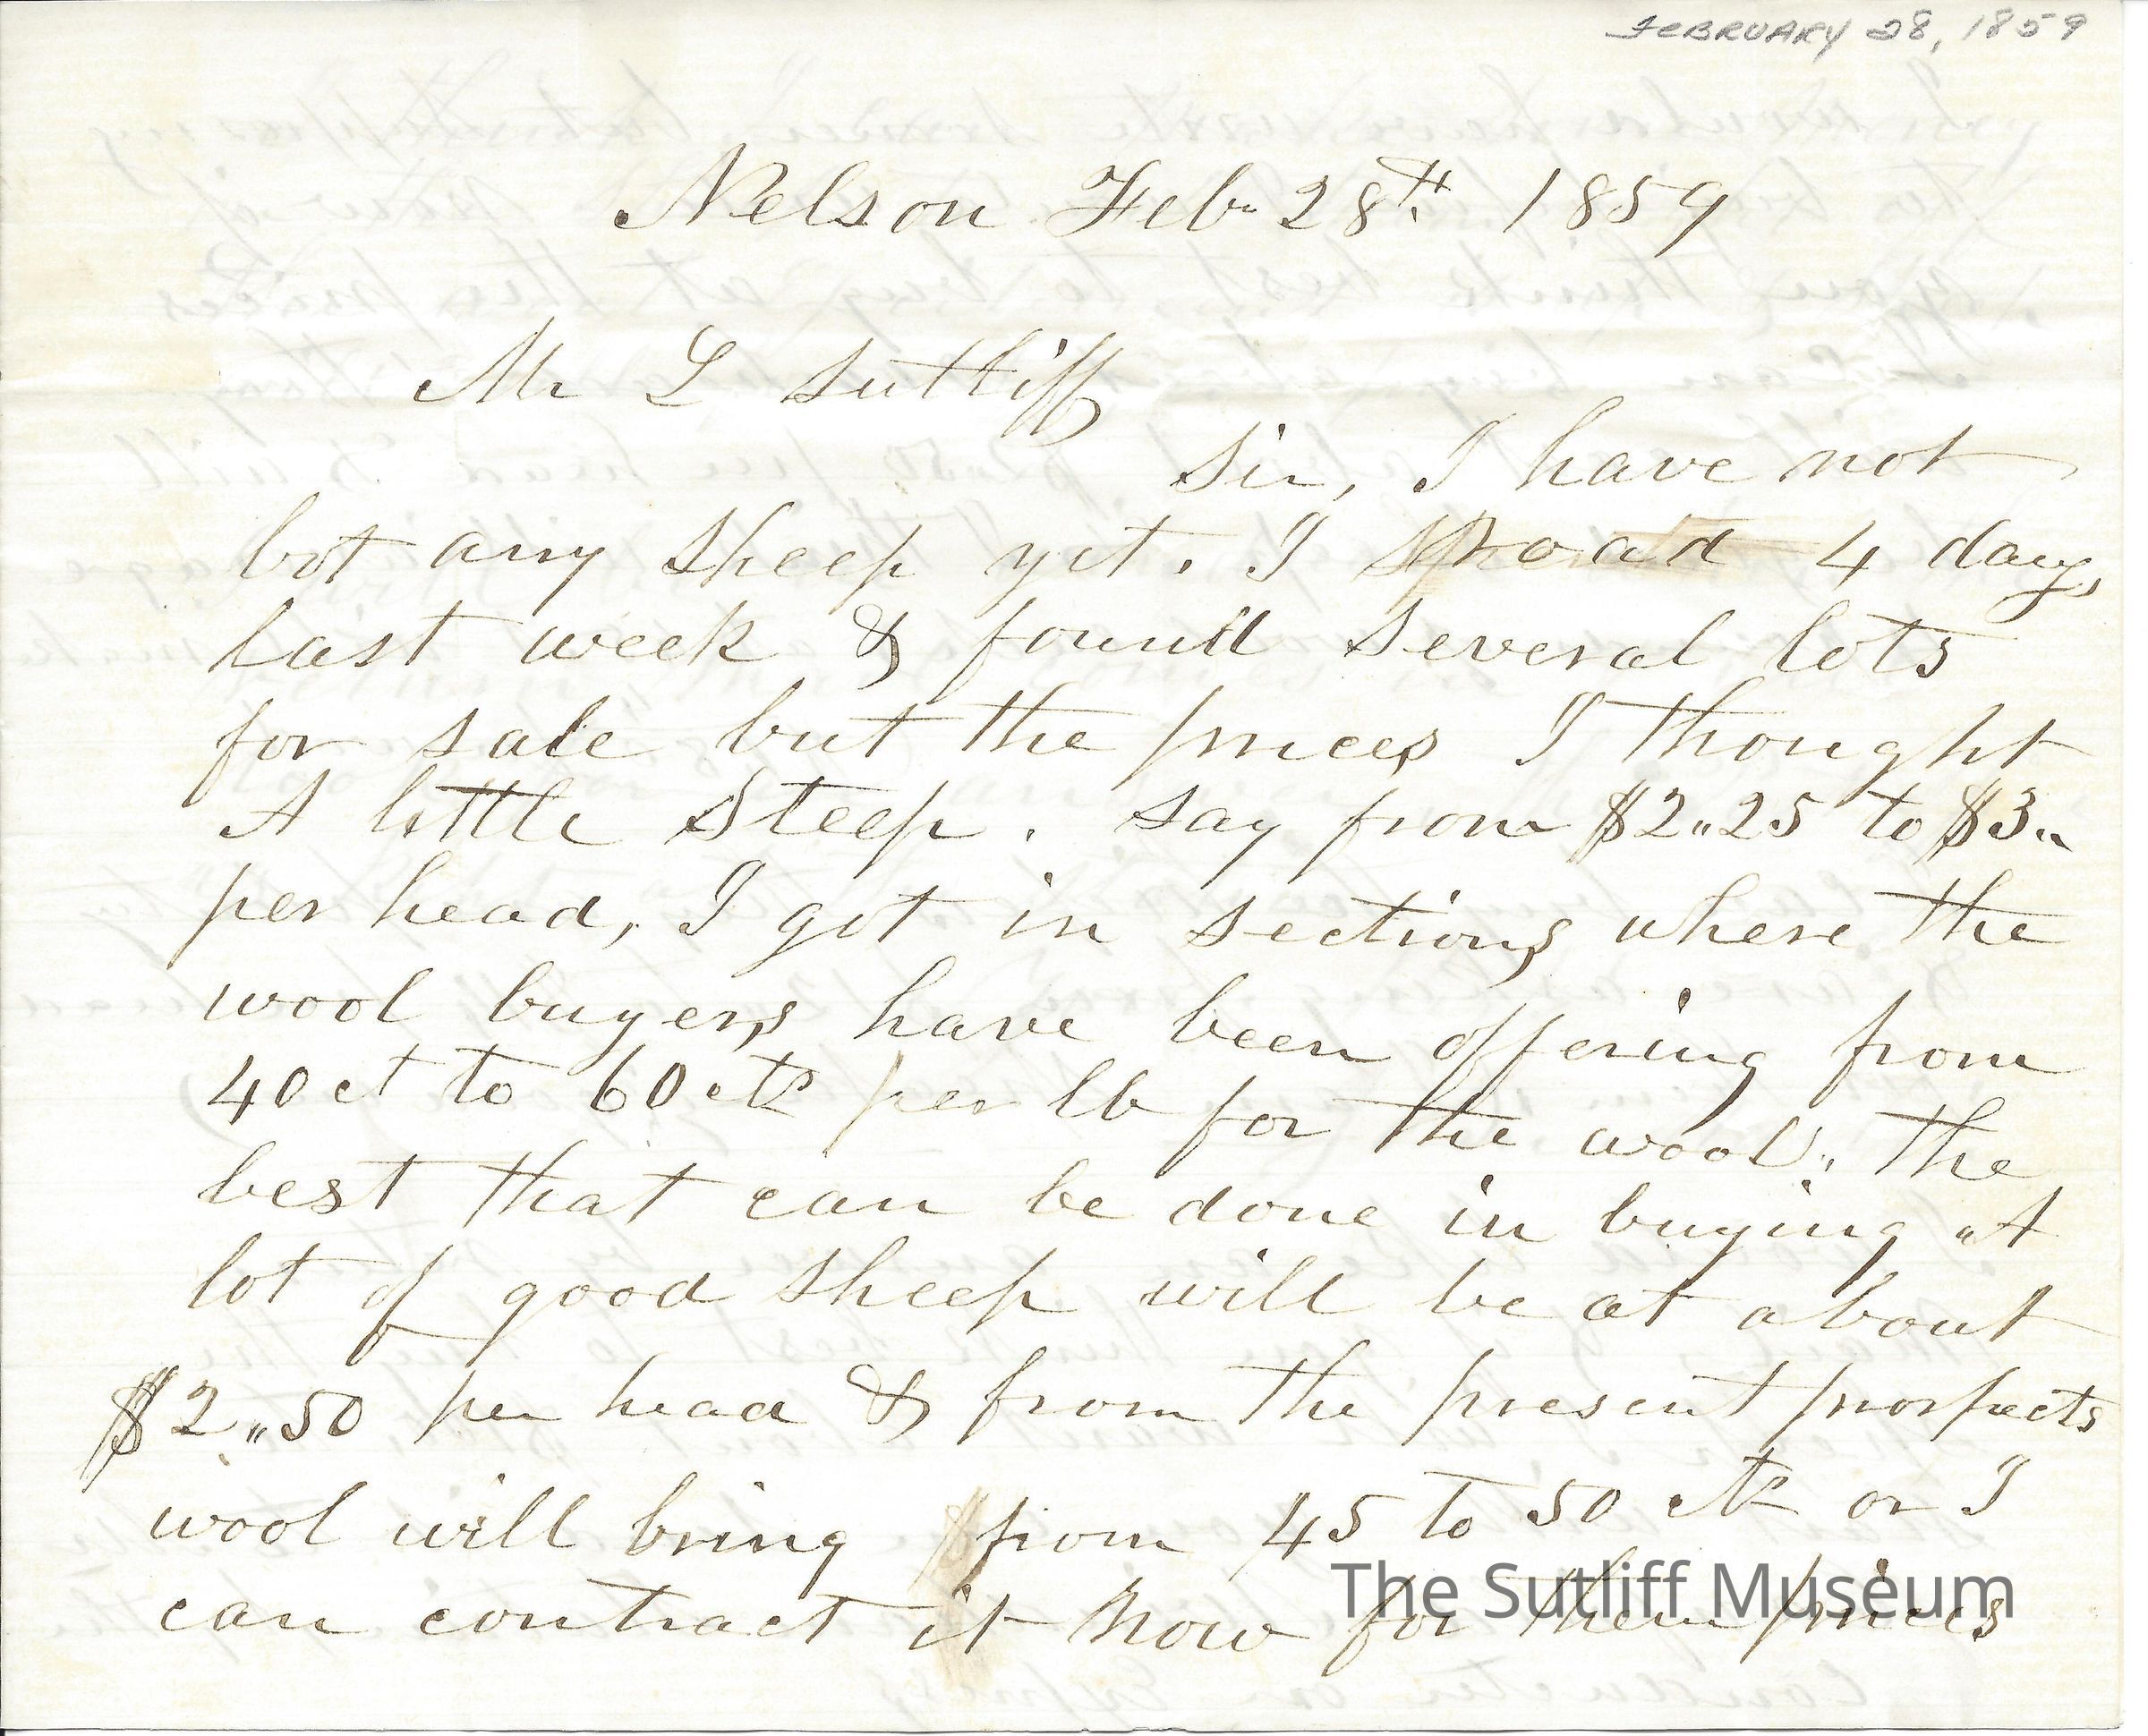 FEBRUARY 28, 1859
Nelson Feb 28th 1859
Mr L Sutliff
Sir, I have not
bot any sheep yet. I 4 days
last week & found several lots
for sale but the prices I thought
A little Steep. say from $2"25 to $3"
per head, I got in sections where the
wool buyers have been offering from
40 ct to 60 cts per lb for the wool. the
best that can be done in buying A
lot of good sheep will be at about
$2"50 per head & from the present prospects
wool will bring from 45 to 50 cts or I
can contract it now for them prices
The Sutliff Museum